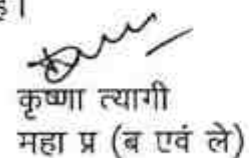 है।
कृष्णा त्यागी
महा प्र (ब एवं ले)